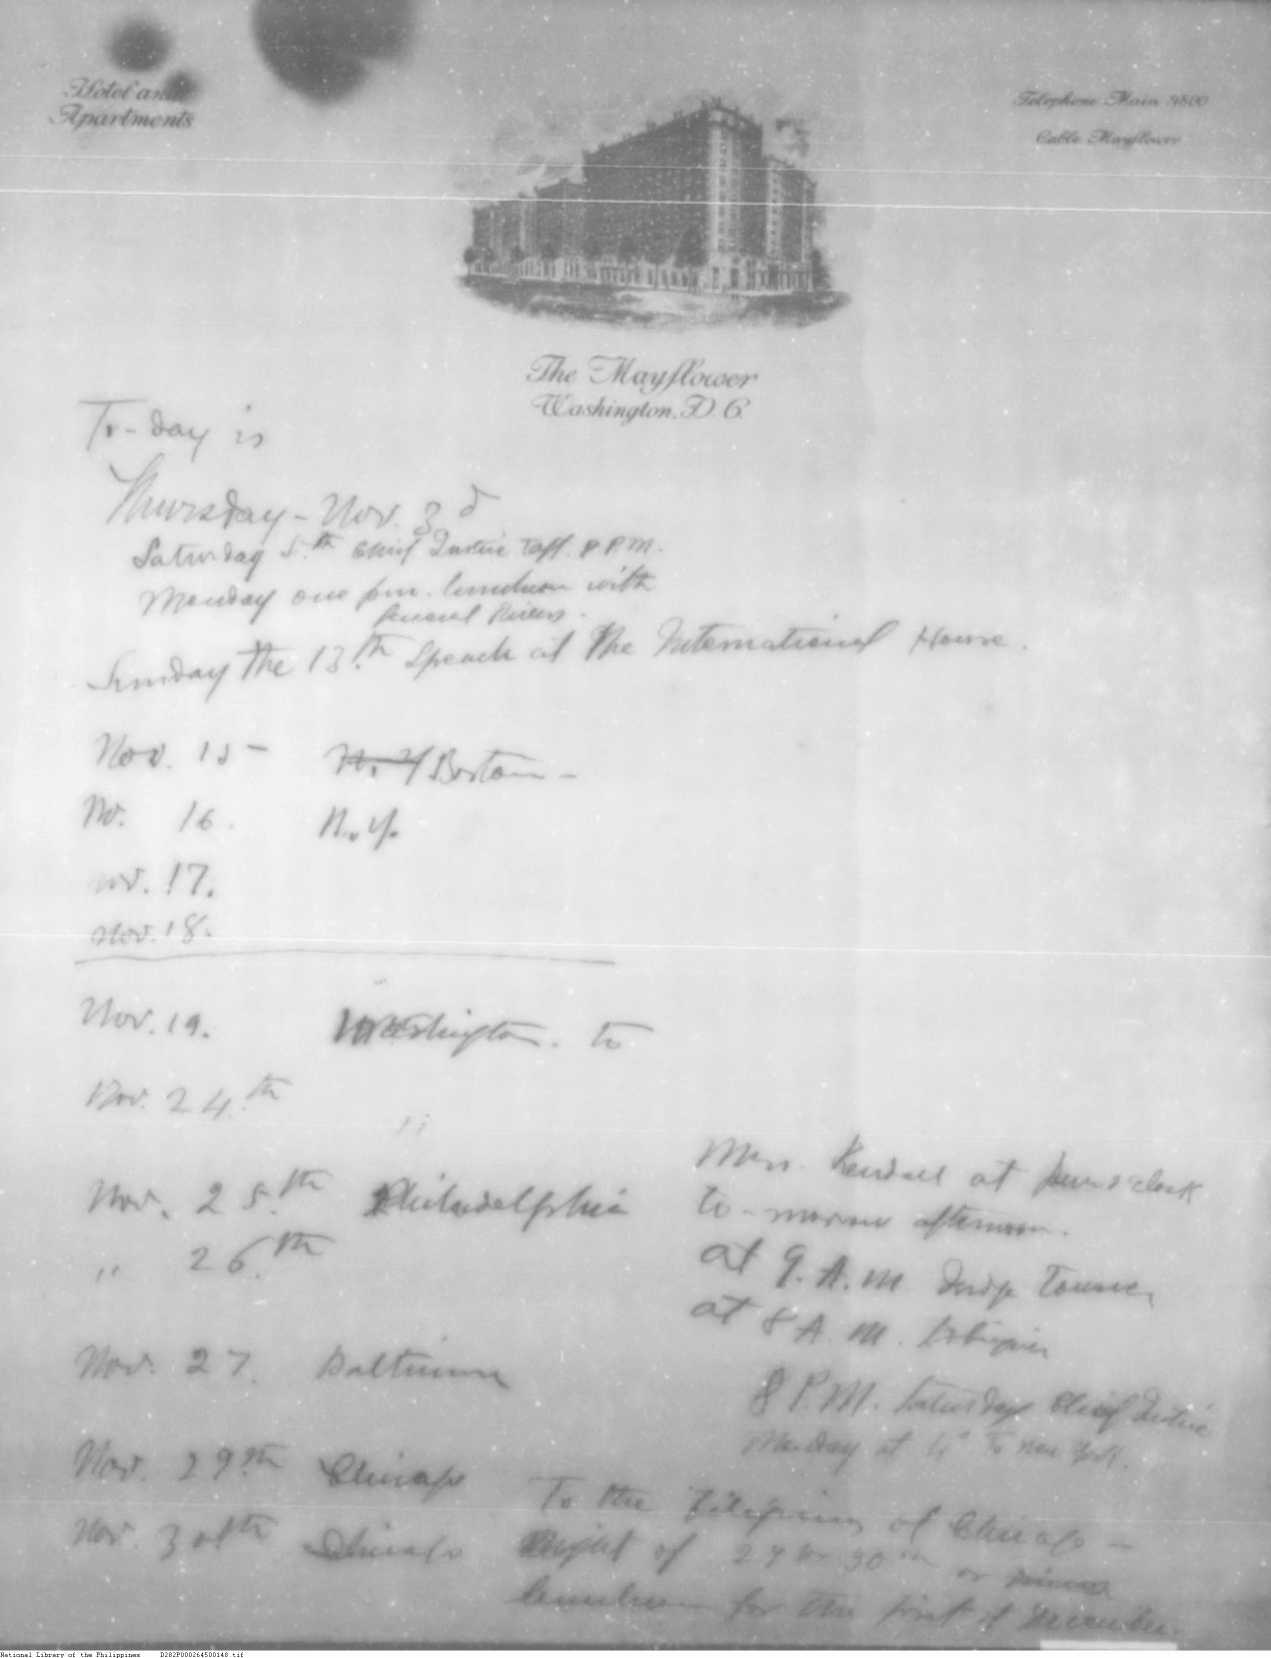 Hotel and
Apartments
Telephone Main 9800
Cable Mayflower
The Mayflower
Washington, D. C.
To-day is
Thursday - Nov. 3d
Saturday 5th Chief Justice Taft. 8 P.M.
Monday one p.m. luncheon with
General
Sunday the 13th Speech at the International House.
Nov. 15 - N.Y Boston -
Nv. 16. N.Y.
nov. 17.
Nov. 18.
Nov. 19. Washington. to
Nov. 24th "
Nov. 25th Philadelphia
" 26th
Nov. 27. Baltimore
Nov. 29th Chicago
Nov. 30th Chicago
Mrs. Kendall at o'clock
to-morrow afternoon.
at 9. A.M Judge Towner
at 8 A.M.
8 P.M. Saturday Chief Justice
Monday at to New York.
To the Filipinos of Chicago -
Night of 29 or 30th or dinner
luncheon for the first of December.
National Library of the Philippines D282P000264500148.tif